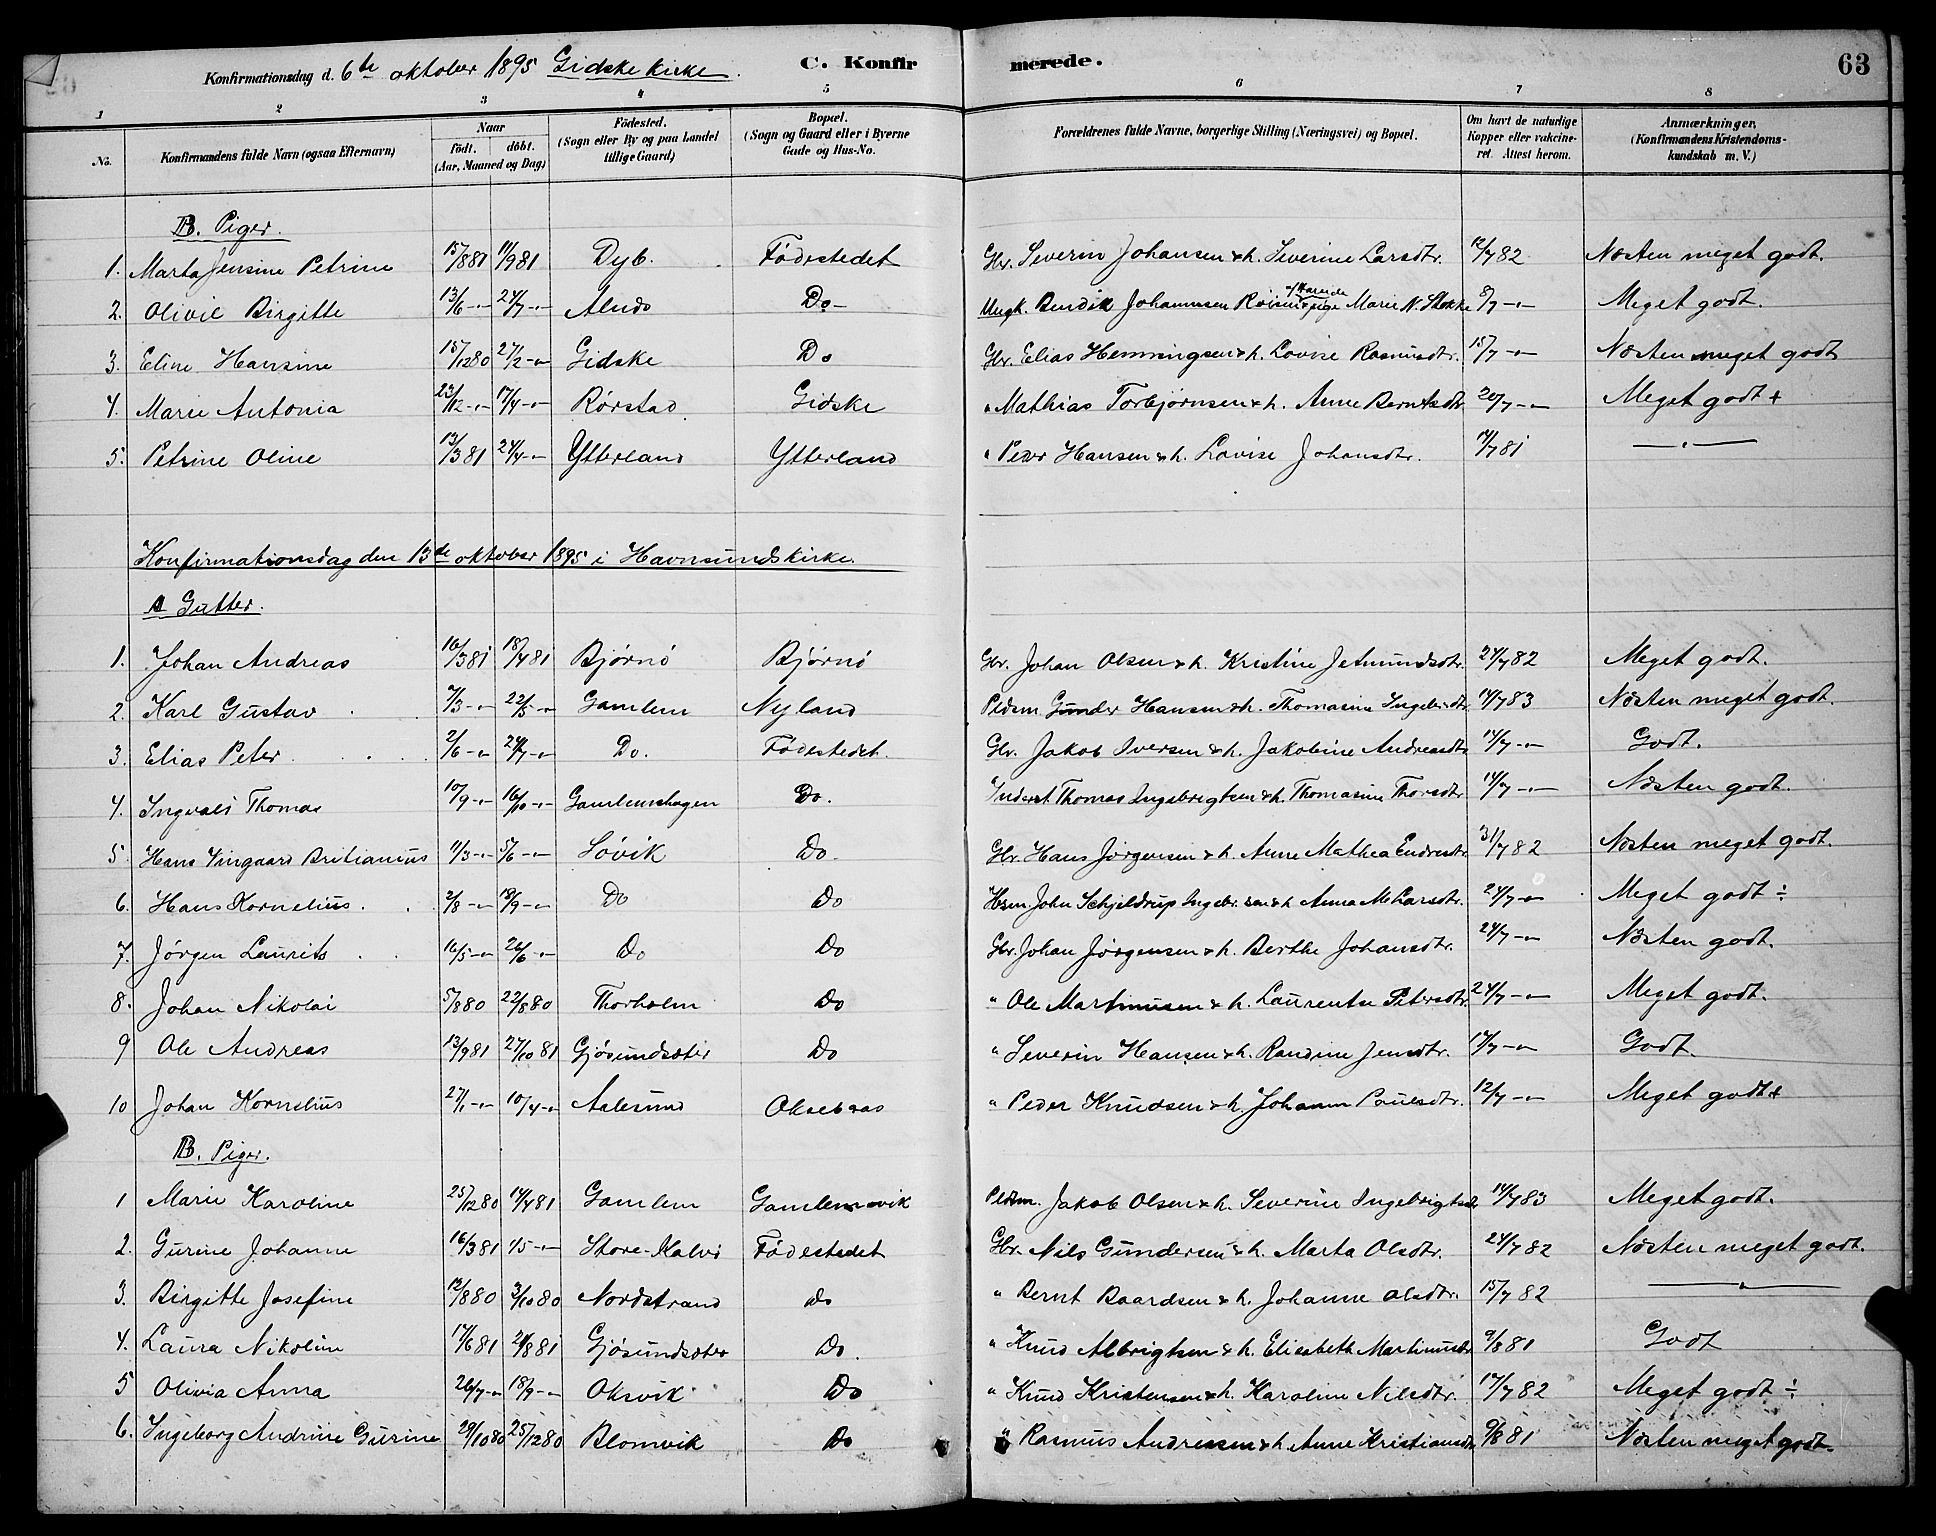 Konfirmationsdag d. 6te oktober 1895 Gidske kirke. C. Konfirmerede. 63
1 2 3 4 5 6 7 8
No. Konfirmandens fulde Navn (ogsaa Efternavn) Naar födt. döbt. (Aar, Maaned og Dag) Födested. (Sogn eller By og paa Landet tillige Gaard) Bopæl. (Sogn og Gaard eller i Byerne Gade og Hus-No. Forældrenes fulde Navne, borgerlige Stilling (Næringsvei) og Bopæl. Om havt de naturlige Kopper eller vakcineret. Attest herom. Anmærkninger, (Konfirmandens Kristendomskundskab m. V.)
B. Piger.
1. Marta Jensine Petrine 15/8 81 11/9 81 Dyb. Födestedet Gbr. Severin Johansen & h. Severine Larsdtr. 12/7 82 Næsten meget godt.
2. Olivie Birgitte 13/6 -"- 24/7 -"- Alnes Do - Ungk. Bendik Johannesen Roisen & pige Marie N. Slokke 8/7 -"- Meget godt.
3. Eline Hansine 15/12 80 27/2 -"- Gidske Do Gbr. Elias Henningsen & h. Lovise Rasmusdtr. 15/7 -"- Næsten meget godt
4. Marie Antonia 23/12 -"- 17/4 -"- Rörstad. Gidske " Mathias Torbjörnsen & h. Anne Berntsdtr 20/7 -"- Meget godt +
5. Petrine Oline 13/3 81 24/4 -"- Ytterland Ytterland " Peder Hansen & h. Lovise Johansdtr. 14/7 81 — " —
Konfirmationsdag den 13de oktober 1895 i Havnsunds kirke.
A Gutter.
1. Johan Andreas 16/3 81 18/4 81 Björnö Björnö Gbr. Johan Olsen & h. Kristine Jetmundsdtr. 24/7 82 Meget godt.
2. Karl Gustav 7/3 -"- 22/5 -"- Gamlem Nyland Pldsm Gunder Hansen & h. Thomasine Ingebr.dtr 14/7 83 Næsten meget godt.
3. Elias Peter 2/6 -"- 24/7 -"- Do. Födestedet. Gbr. Jakob Iversen & h. Jakobine Andreasdtr 14/7 -"- Godt.
4. Ingvald Thomas 10/9 -"- 16/10 -"- Gamlemshagen Do. Inderst Thomas Ingebrigtsen & h. Thomasine Thorsdtr 14/7 -"- Næsten godt.
5. Hans Vingaard Britianius 11/3 -"- 5/6 -"- Lövik Do Gbr. Hans Jörgensen & h. Anne Mathea Endresdtr. 31/7 82 Næsten meget godt.
6. Hans Kornelius. 2/8 -"- 18/9 -"- Do Do Hsm. John Schjeldrup Ingebr.sen & h Anna M. Larsdtr. 24/7 -"- Meget godt ÷
7. Jörgen Laurits 16/5 -"- 26/6 -"- Do Do Gbr. Johan Jörgensen & h. Berthe Johansdtr. 24/7 -"- Næsten godt.
8. Johan Nikolai 5/8 80 22/8 80 Thorholm Do " Ole Martinusen & h. Laurentse Petersdtr. 24/7 -"- Meget godt.
9 Ole Andreas 13/9 81 27/10 81 Gjösundsæter Do " Severin Hansen & h. Randine Jensdtr. 17/7 -"- Godt.
10 Johan Kornelius 27/1 -"- 10/4 -"- Aalesund Oksebaas " Peder Knudsen & h. Johanna Paulsdtr. 12/7 -"- Meget godt +
B. Piger.
1 Marie Karoline 25/12 80 14/4 81 Gamlem Gamlemsvik Pldsm. Jakob Olsen & h. Severine Ingebrigtsdr 14/7 83 Meget godt.
2. Gurine Johanne 16/3 81 1/5 -"- Store-Kalvö Födestedet Gbr. Nils Gundersen & h. Marta Olsdtr. 24/7 82 Næsten meget godt.
3. Birgitte Josefine 12/8 80 3/10 80 Nordstrand Do " Bernt Baardsen & h. Johanne Olsdtr. 15/7 82 — " —
4. Laura Nikoline 17/6 81 21/8 81 Gjösundsæter Do. " Knud Albrigtsen & h. Elisabeth Martinusdr 9/8 81 Godt
5 Olivia Anna 26/7 -"- 18/9 -"- Oksvik Do " Knud Kristensen & h. Karoline Nilsdtr. 17/7 82 Meget godt ÷
6. Ingeborg Andrine Gurine 29/10 80 25/12 80 Blomvik Do " Rasmus Andresen & h. Anne Kristiansdtr 9/8 81 Næsten meget godt.